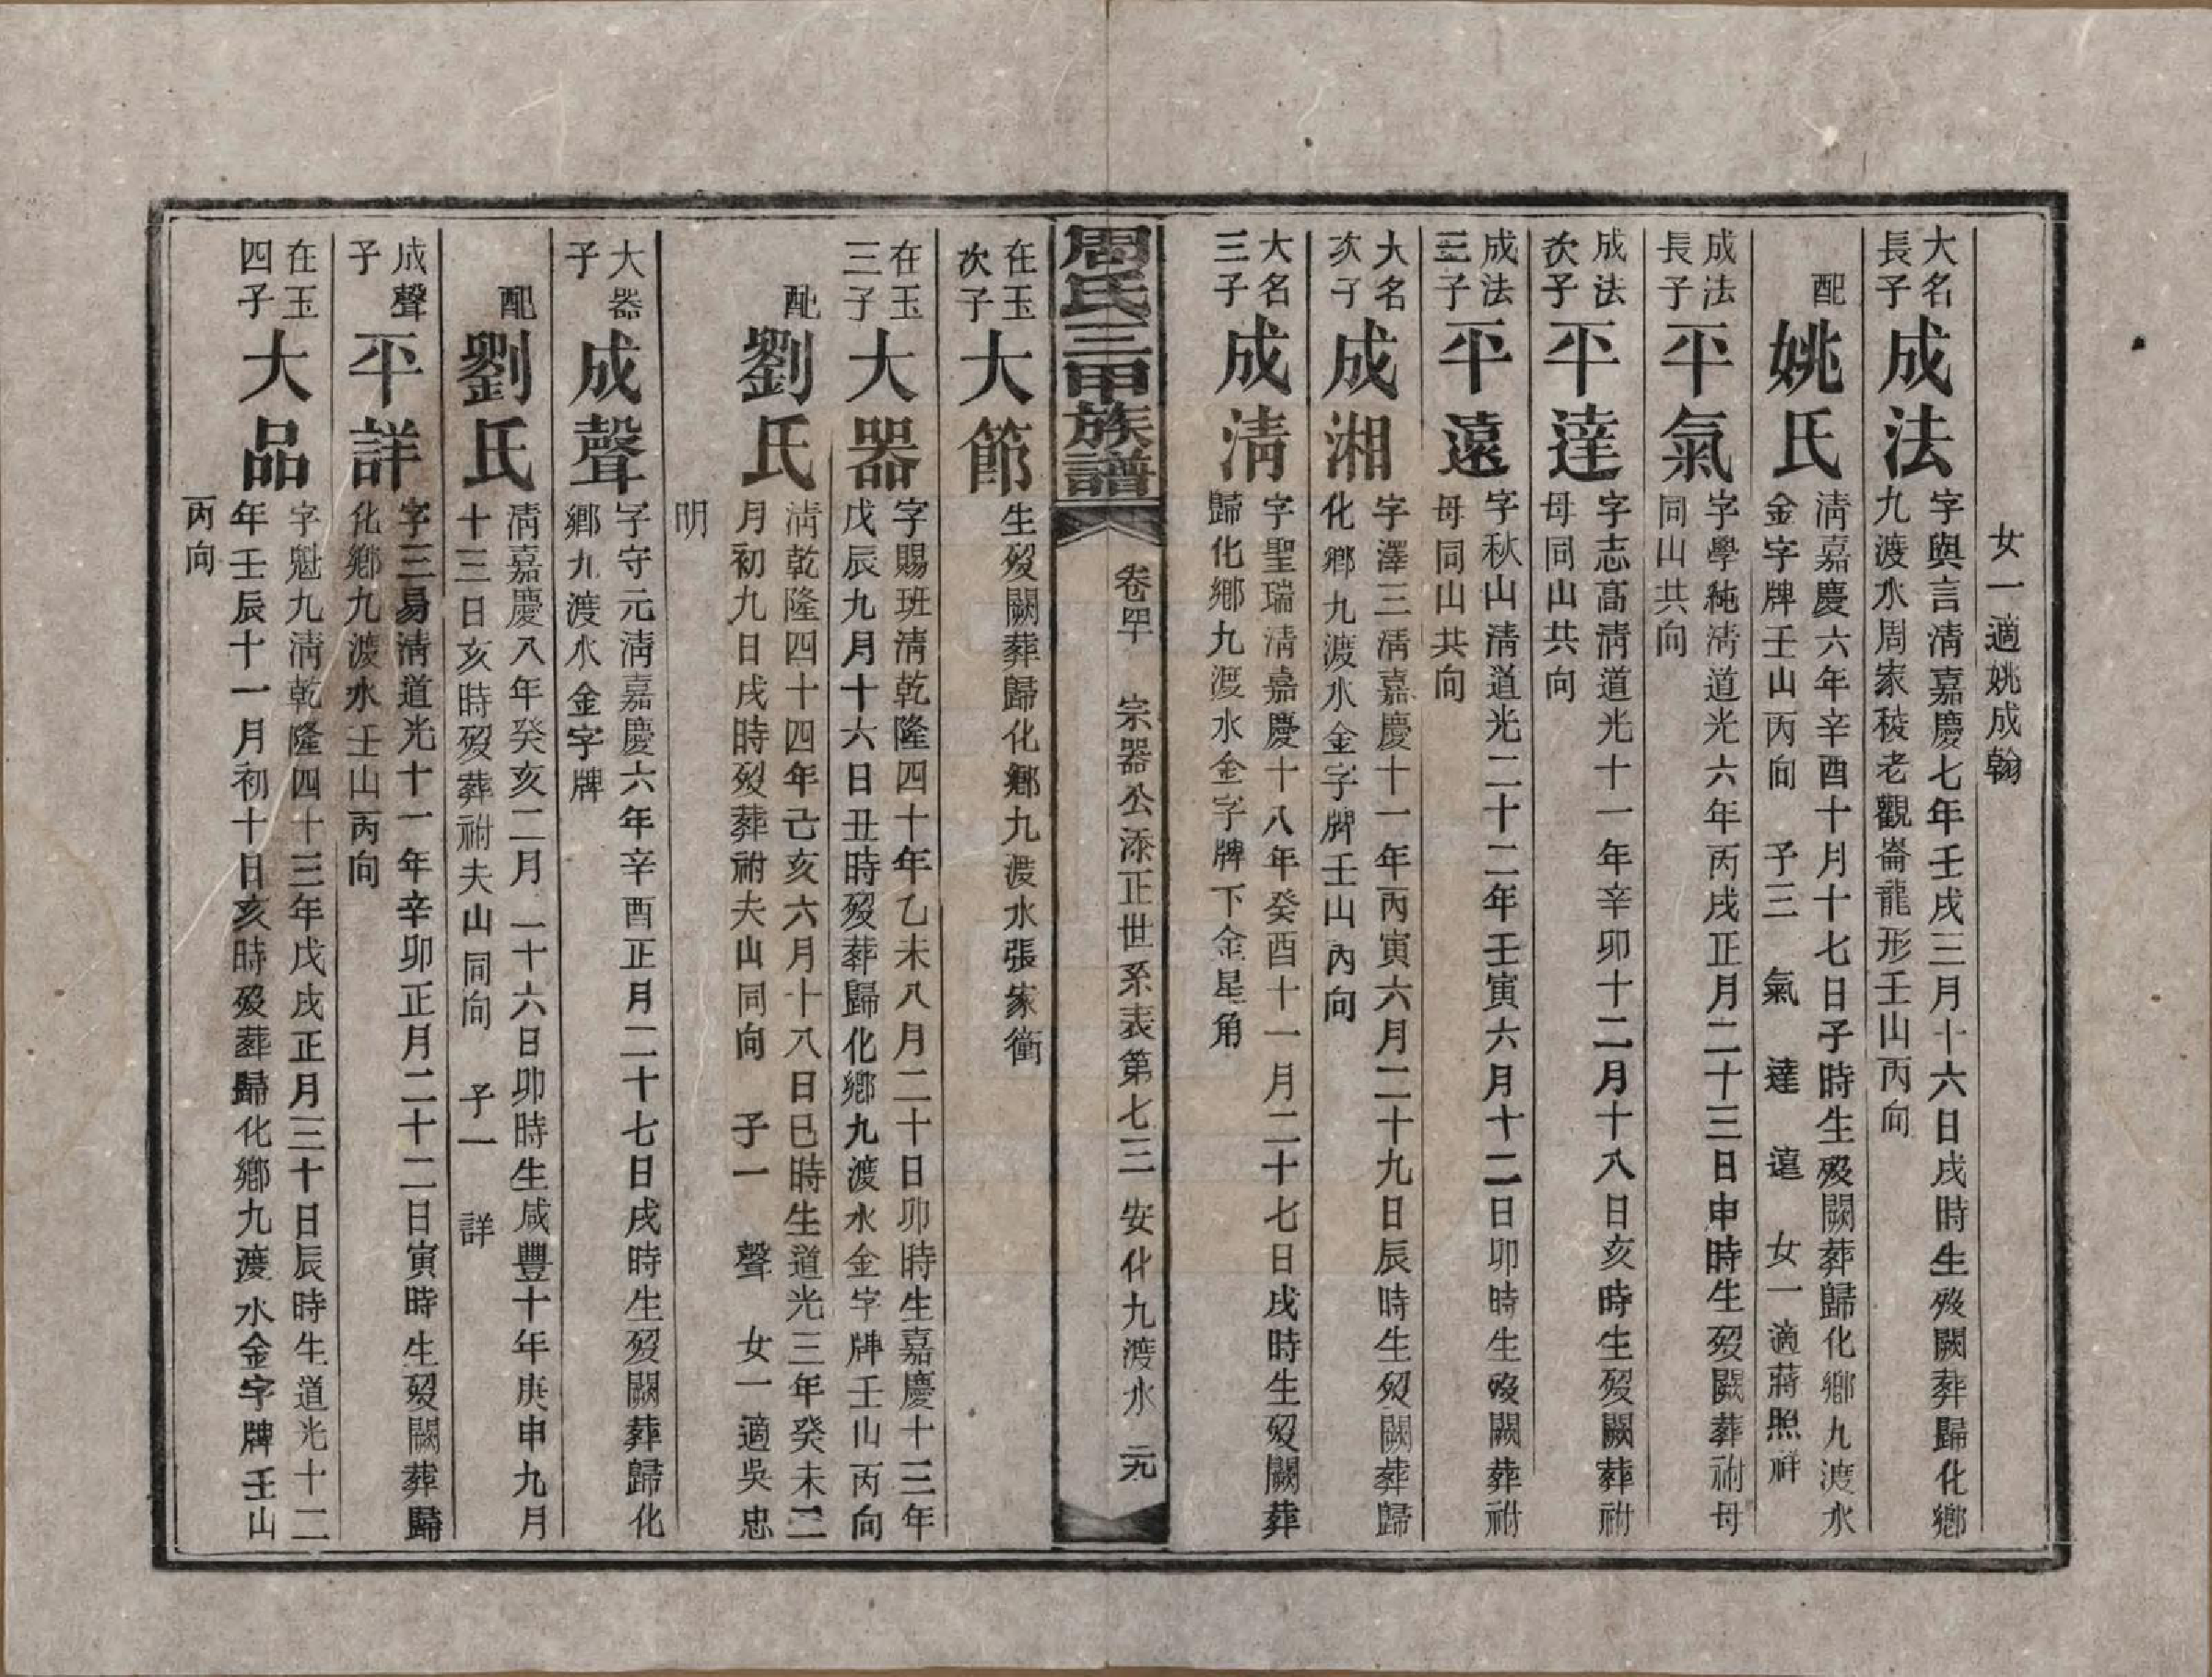 女一適姚成翰
大名長子
成法
字與言清嘉慶七年壬戌三月十六日戌時生歿闕葬歸化鄉
九渡水周家稜老觀崙龍形壬山丙向
配
姚氏
清嘉慶六年辛酉十月十七日子時生歿闕葬歸化鄉九渡水
金字牌壬山丙向 子三 氣 達 遠 女一適蔣照祥
成法長子
平氣
字學純清道光六年丙戌正月二十三日申時生歿闕葬祔母
同山共向
成法次子
平達
字志高清道光十一年辛卯十二月十八日亥時生歿闕葬祔
母同山共向
成法三子
平遠
字秋山清道光二十二年壬寅六月十二日卯時生歿闕葬祔
母同山共向
大名次子
成湘
字澤三清嘉慶十一年丙寅六月二十九日辰時生歿闕葬歸
化鄉九渡水金字牌壬山丙向
大名三子
成淸
字聖瑞清嘉慶十八年癸酉十一月二十七日戌時生歿闕葬
歸化鄉九渡水金字牌下金星角
周氏三甲族譜
卷四十 宗器公添正世系表第七三 安化九渡水 元
在玉次子
大節
生歿闕葬歸化鄉九渡水張家衝
在玉三子
大器
字賜班清乾隆四十年乙未八月二十日卯時生嘉慶十三年
戊辰九月十六日丑時歿葬歸化鄉九渡水金字牌壬山丙向
配
劉氏
清乾隆四十四年己亥六月十八日巳時生道光三年癸未二
月初九日戌時歿葬祔夫山同向 子一 聲 女一適吳忠
明
大器子
成聲
字守元清嘉慶六年辛酉正月二十七日戌時生歿闕葬歸化
鄉九渡水金字牌
配
劉氏
清嘉慶八年癸亥二月二十六日卯時生咸豐十年庚申九月
十三日亥時歿葬祔夫山同向 子一 詳
成聲子
平詳
字三易清道光十一年辛卯正月二十二日寅時生歿闕葬歸
化鄉九渡水壬山丙向
在玉四子
大品
字魁九清乾隆四十三年戊戌正月三十日辰時生道光十二
年壬辰十一月初十日亥時歿葬歸化鄉九渡水金字牌壬山
丙向